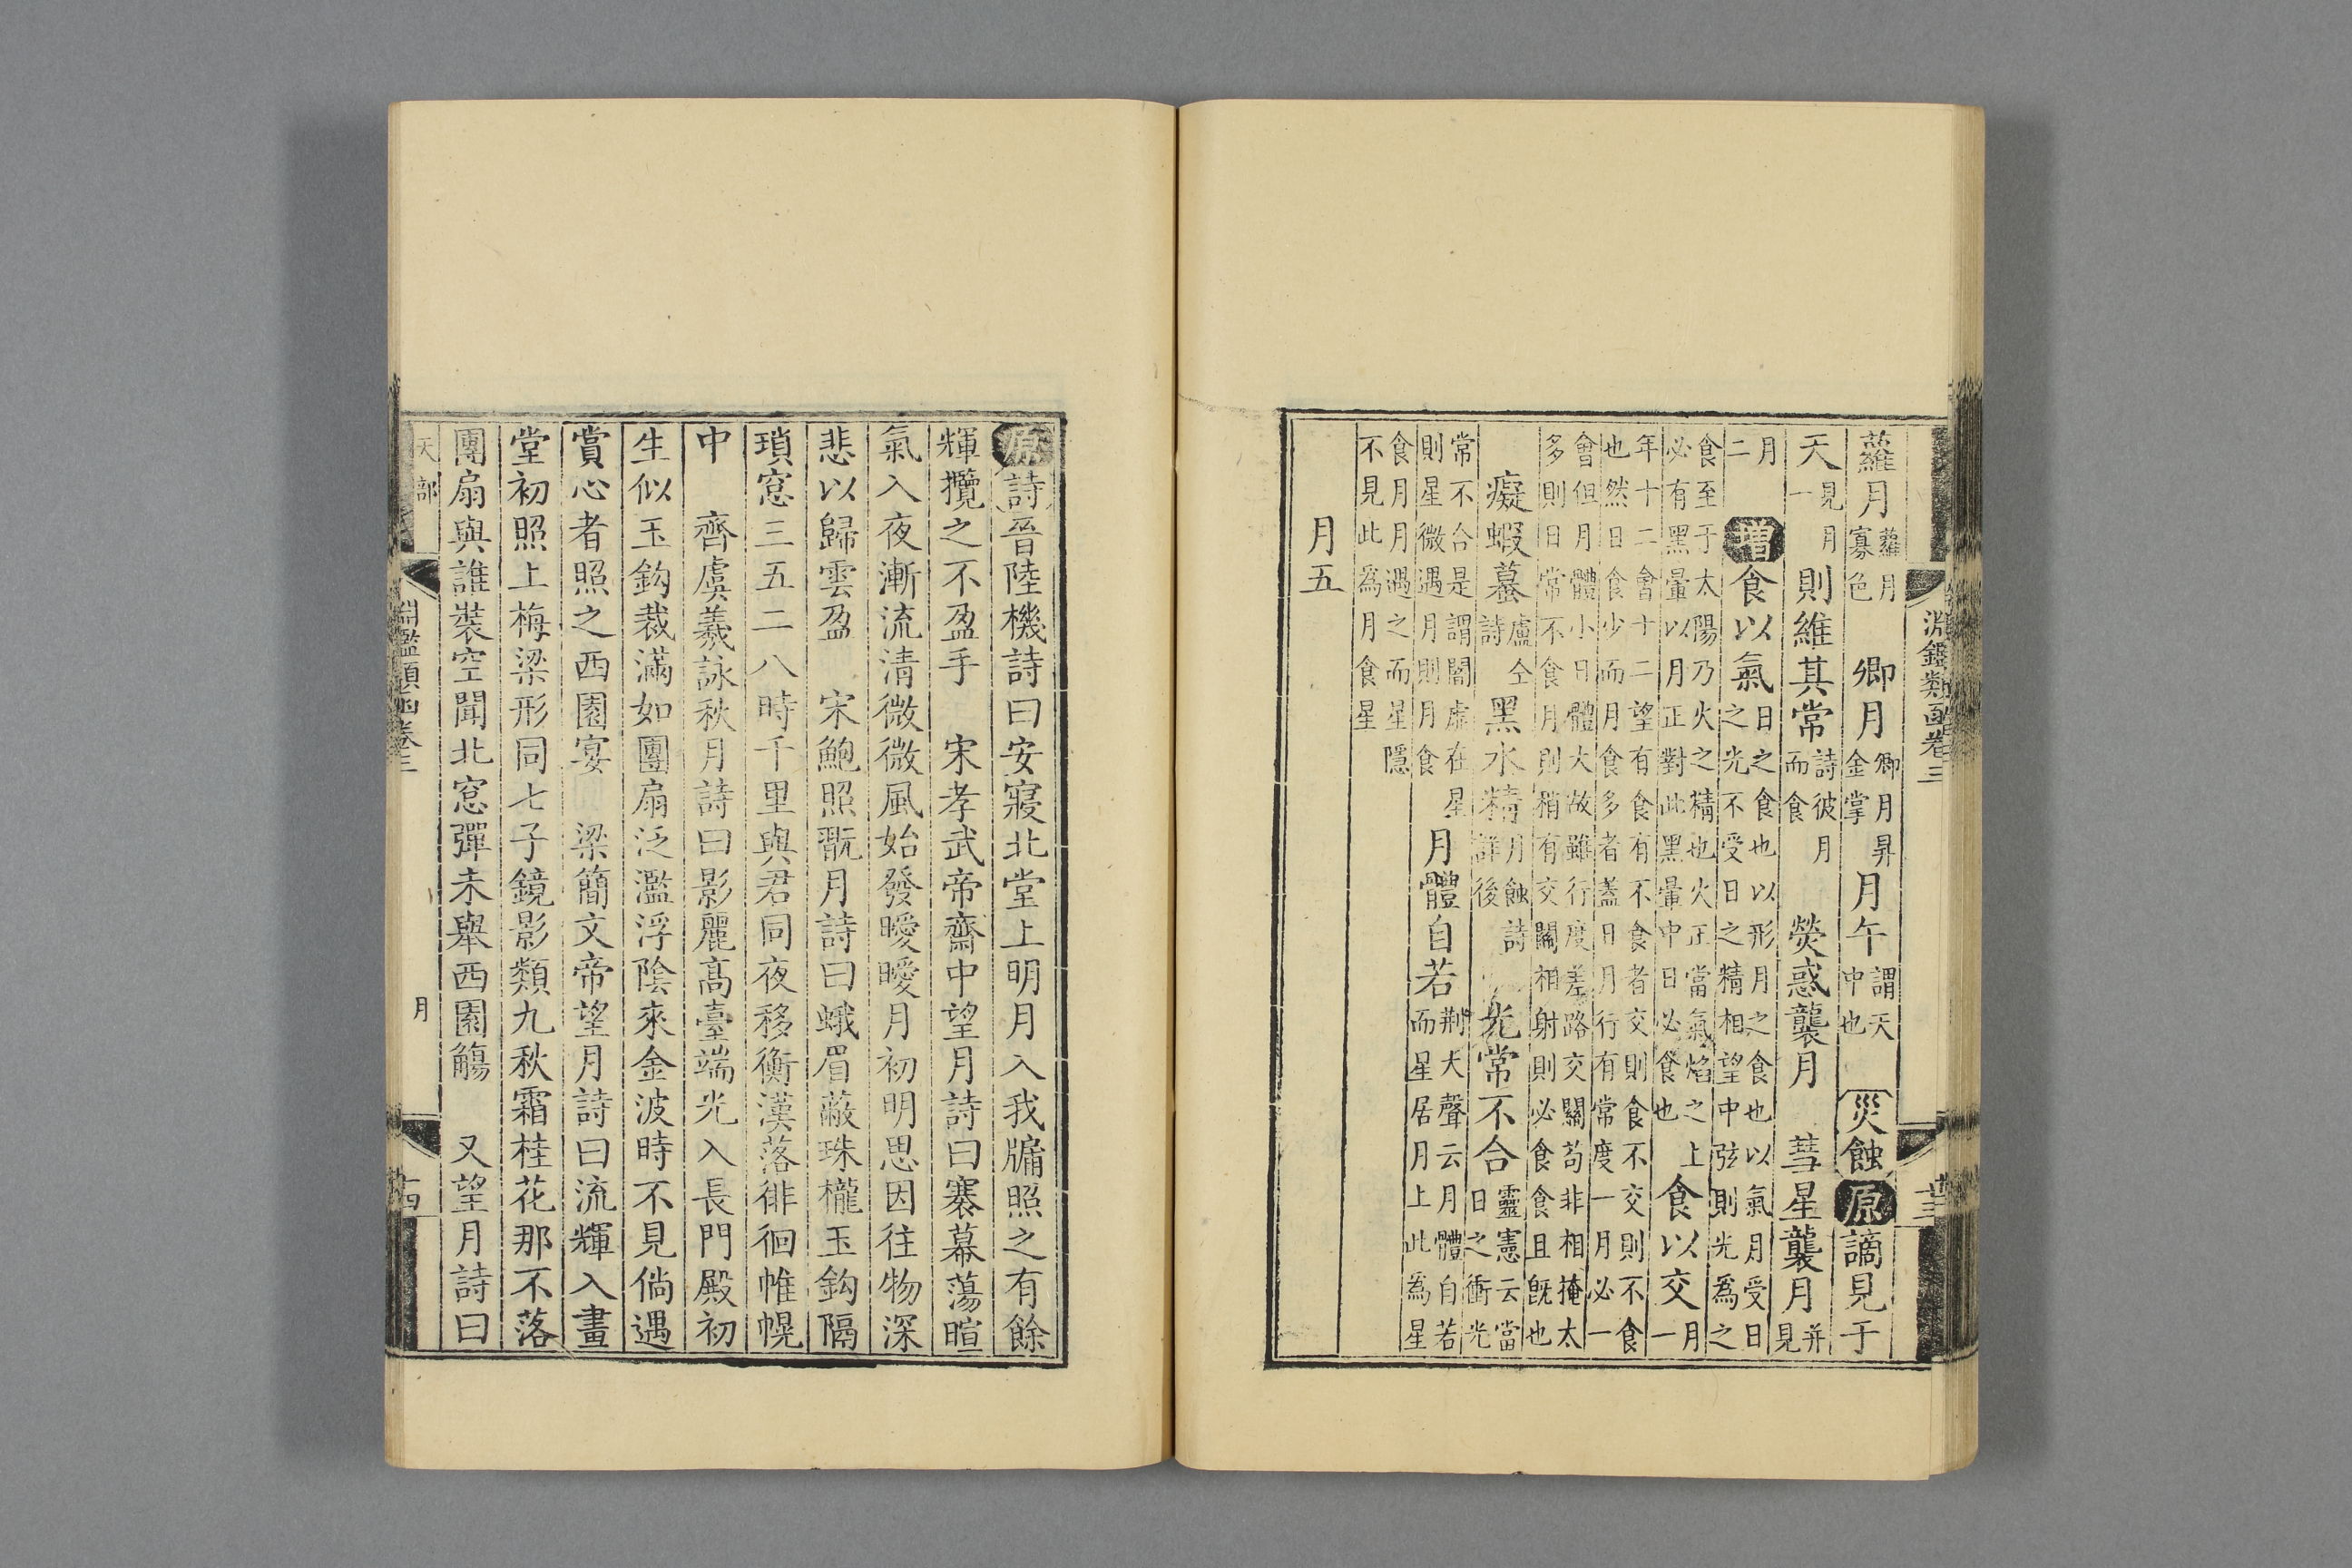 淵鑑類函卷三　廿三
蘿月蘿月寡色　卿月卿月昇金掌　月午謂天中也　災蝕　原謫見于
天見月一　則維其常詩彼月而食　熒惑襲月　彗星襲月并見
月二　增食以氣日之食也以形月之食也以氣月受日之光不受日之精相望中弦則光爲之
食至于太陽乃火之精也火正當氣焰之上必有黑暈以月正對此黑暈中日必食也　食以交月一
年十二會十二望有食有不食者交則食不交則不食也然日食少而月食多者蓋日月行有常度一月必一
會但月體小日體大故雖行度差路交關苟非相掩太多則日常不食月則稍有交關相射則必食食且旣也
癡蝦蟇盧仝詩　黑水精月蝕詩詳後　光常不合靈憲云當日之衝光
常不合是謂闇虛在星則星微遇月則月食　月體自若荆大聲云月體自若而星居月上此爲星
食月月遇之而星隱不見此爲月食星
月五
原詩晉陸機詩曰安寢北堂上明月入我牖照之有餘
輝攬之不盈手　宋孝武帝齋中望月詩曰褰幕蕩暄
氣入夜漸流清微微風始發曖曖月初明思因往物深
悲以歸雲盈　宋鮑照翫月詩曰蛾眉蔽珠櫳玉鈎隔
瑣窓三五二八時千里與君同夜移衡漢落徘徊帷幌
中　齊虞羲詠秋月詩曰影麗高臺端光入長門殿初
生似玉鈎裁滿如團扇泛濫浮陰來金波時不見倘遇
賞心者照之西園宴　梁簡文帝望月詩曰流輝入畫
堂初照上梅梁形同七子鏡影類九秋霜桂花那不落
團扇與誰裝空聞北窓彈未舉西園觴　又望月詩曰
天部　淵鑑類函卷三　月　廿四